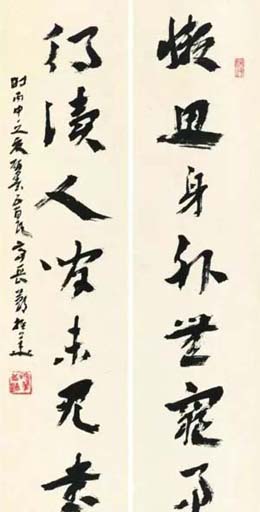 懶思身外無窮事
得讀人間未見書
時丙申之夏